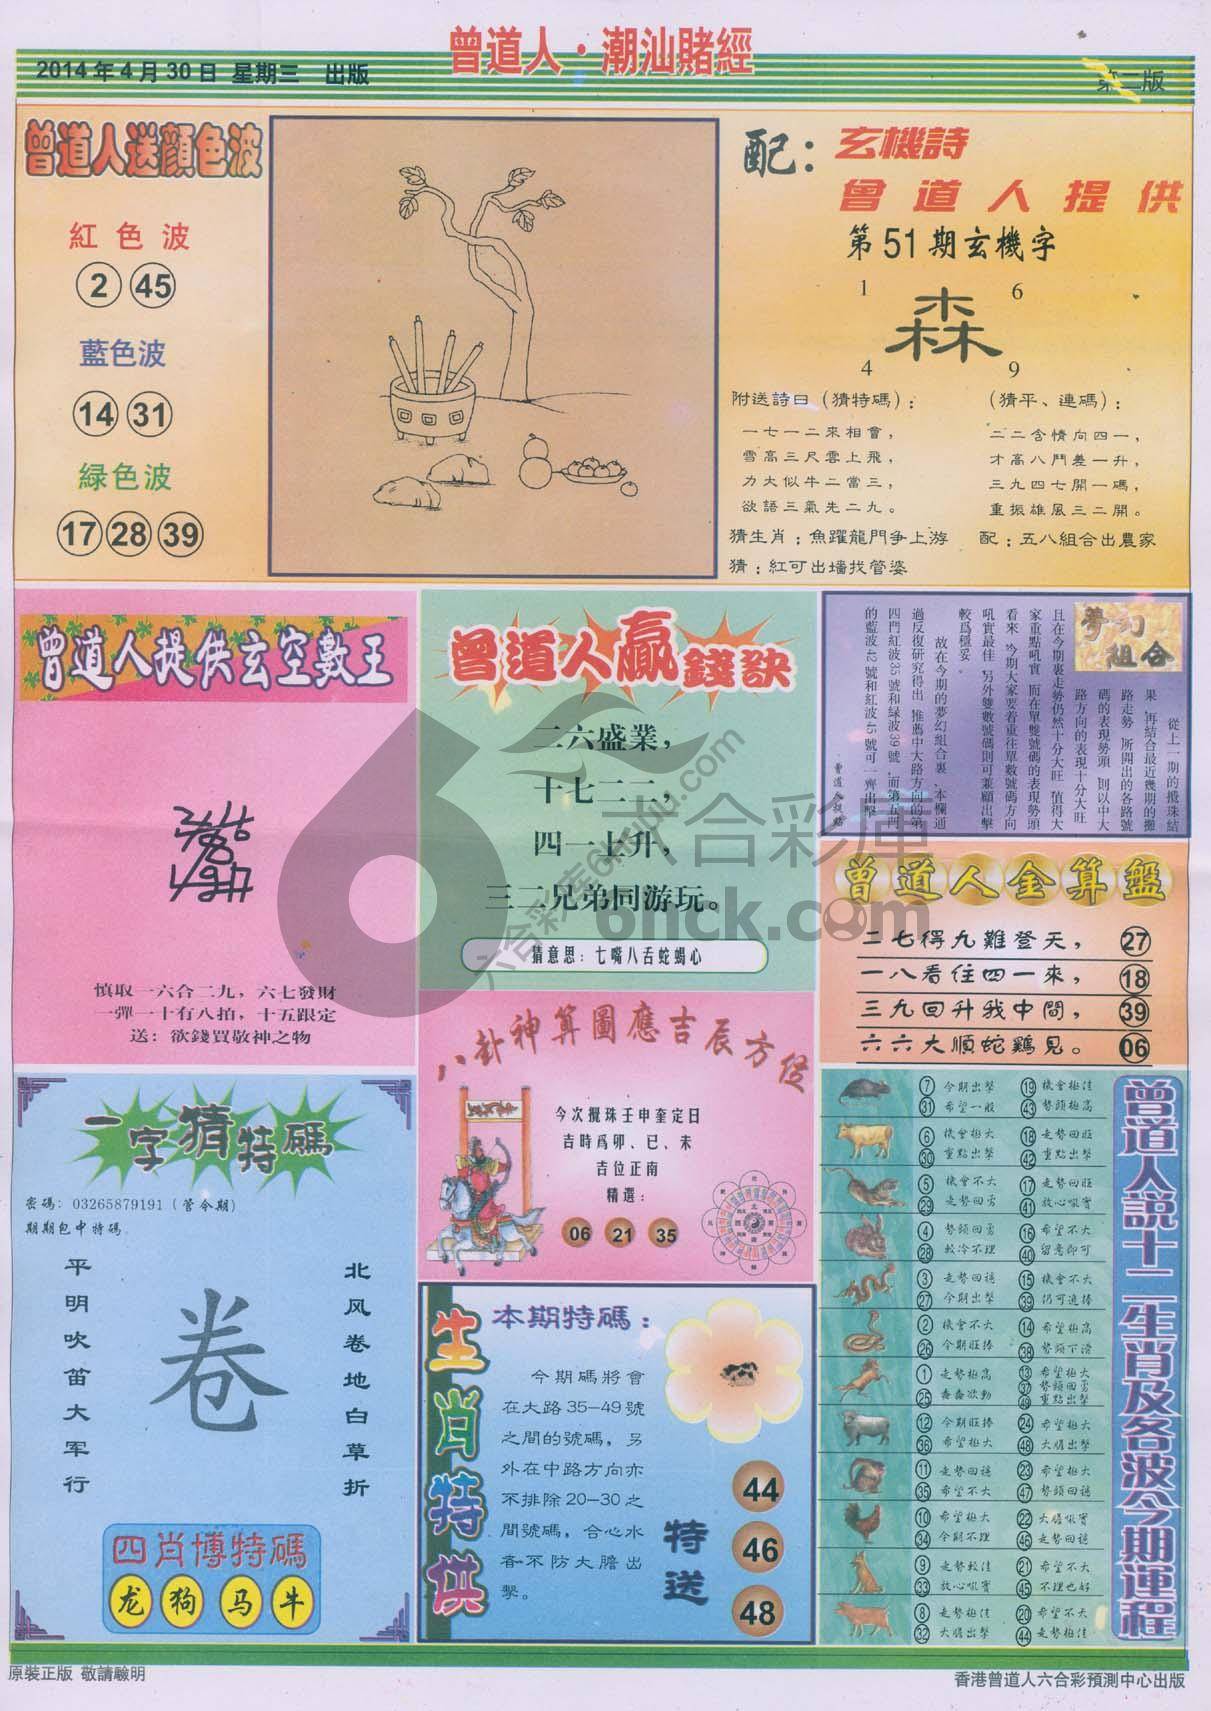 曾道人·潮汕賭經
2014年4月30日 星期三 出版
第二版
曾道人送顔色波
紅色波
2 45
藍色波
14 31
緑色波
17 28 39
配：玄機詩
曾道人提供
第51期玄機字
1 6
森
4 9
附送詩曰（猜特碼）：
一七一二來相會，
雪高三尺雲上飛，
力大似牛二當三，
欲語三氣先二九。
（猜平、連碼）：
二二含情向四一，
才高八鬥差一升，
三九四七開一碼，
重振雄風三二開。
猜生肖：魚躍龍門爭上游
配：五八組合出農家
猜：紅可出墻找管婆
曾道人提供玄空數王
慎取一六合二九，六七發財
一彈一十有八拍，十五跟定
送：欲錢買敬神之物
曾道人贏錢訣
二六盛業，
十七二二，
四一上升，
三二兄弟同游玩。
猜意思：七嘴八舌蛇蝎心
夢幻組合
從上一期的攪珠結
果，再結合最近幾期的攤
路走勢，所開出的各路號
碼的表現勢頭，則以中大
路方向的表現十分大旺，
且在今期裏走勢仍然十分大旺，值得大
家重點吼實，而在單雙號碼的表現勢頭
看來，今期大家要着重往單數號碼方向
吼實最佳，另外雙數號碼則可兼顧出擊
較爲穩妥。
故在今期的夢幻組合裏，本欄通
過反復研究得出，推薦中大路方向的第
四門紅波35號和緑波39號，而第五門
的藍波42號和紅波45號可一齊出擊。
曾道人提點
曾道人金算盤
二七得九難登天， 27
一八看住四一來， 18
三九回升我中間， 39
六六大順蛇鷄見。 06
八卦神算圖應吉辰方位
今次攪珠壬申奎定日
吉時爲卯、巳、未
吉位正南
精選：
06 21 35
一字猜特碼
密碼：03265879191（管今期）
期期包中特碼.
北风卷地白草折
卷
平明吹笛大军行
四肖博特碼
龙 狗 马 牛
生肖特供
本期特碼：
今期碼將會
在大路35—49號
之間的號碼，另
外在中路方向亦
不排除20—30之
間號碼，合心水
者不防大膽出
擊。
特送
44
46
48
曾道人説十二生肖及各波今期運程
7 今期出擊 19 機會極佳
31 希望一般 43 勢頭極高
6 機會極大 18 走勢回旺
30 重點出擊 42 重點出擊
5 機會不大 17 走勢回旺
29 走勢回勇 41 放心吼實
4 勢頭回勇 16 希望不大
28 較冷不理 40 留意即可
3 走勢回穩 15 機會不大
27 今期出擊 39 仍可追捧
2 機會不大 14 希望極高
26 今期旺捧 38 勢頭下滑
1 走勢極高 13 希望極大
37 勢頭回勇
25 蠢蠢欲動 49 重點出擊
12 今期旺捧 24 希望極大
36 希望極大 48 大膽出擊
11 走勢回穩 23 希望極大
35 希望不大 47 勢頭回穩
10 希望極大 22 大膽吼實
34 今期不理 46 走勢回穩
9 走勢較佳 21 希望不大
33 放心吼實 45 不理也好
8 走勢極佳 20 希望不大
32 大膽出擊 44 走勢極佳
原裝正版 敬請驗明
香港曾道人六合彩預測中心出版
六合彩庫
6hck.com